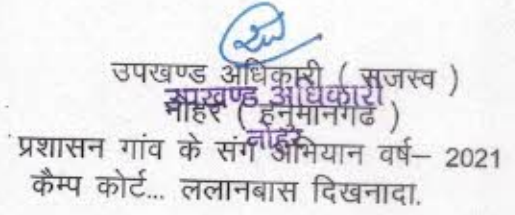 उपखण्ड अधिकारी ( राजस्व )
उपखण्ड अधिकारी
नोहर ( हनुमानगढ )
नोहर
प्रशासन गांव के संग अभियान वर्ष– 2021
कैम्प कोर्ट... ललानबास दिखनादा.